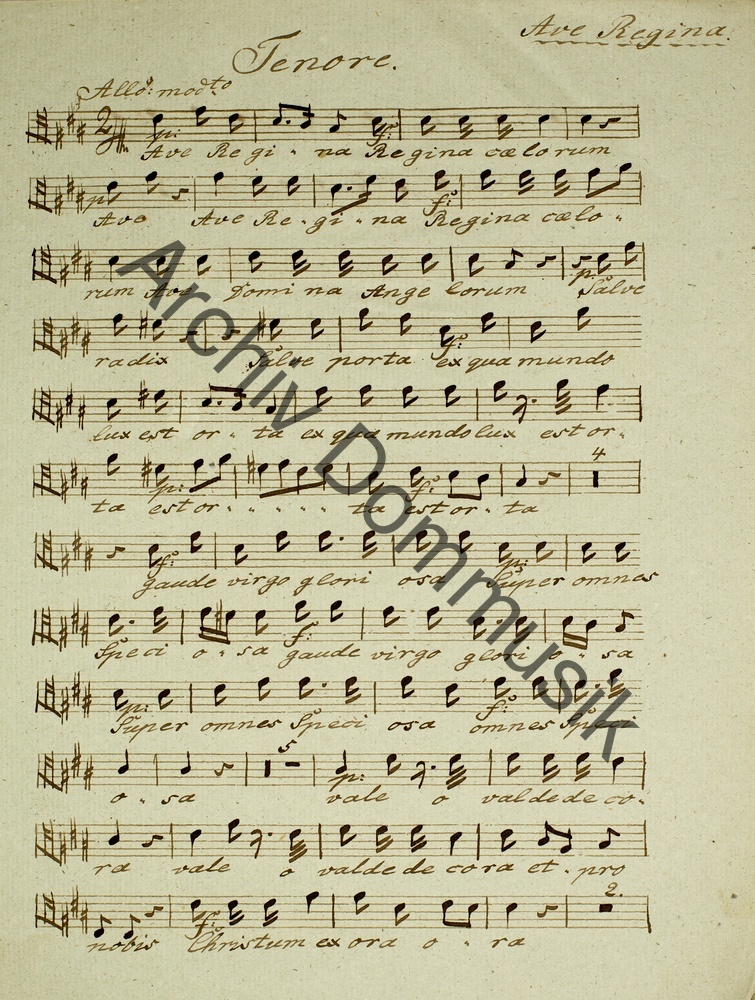 Ave Regina.
Tenore.
Allo: modto
2 p: f:
Ave Regi - na Regina cælorum
p f:
Ave Ave Re - gi - na Regina cælo -
p:
rum Ave Domina Angelorum Salve
f:
radix Salve porta ex qua mundo
lux est or - ta ex qua mundo lux est or -
p: f: 4
ta est or - - - - - ta est or - ta
f: p:
gaude virgo gloriosa Super omnes
f:
Speci o - sa gaude virgo glori o - sa
p: f:
Super omnes Speci osa omnes Speci
5 p:
o - sa vale o valde de co -
ra vale o valde decora et - pro
f: 2.
nobis Christum exora o - ra
Archiv Dommusik